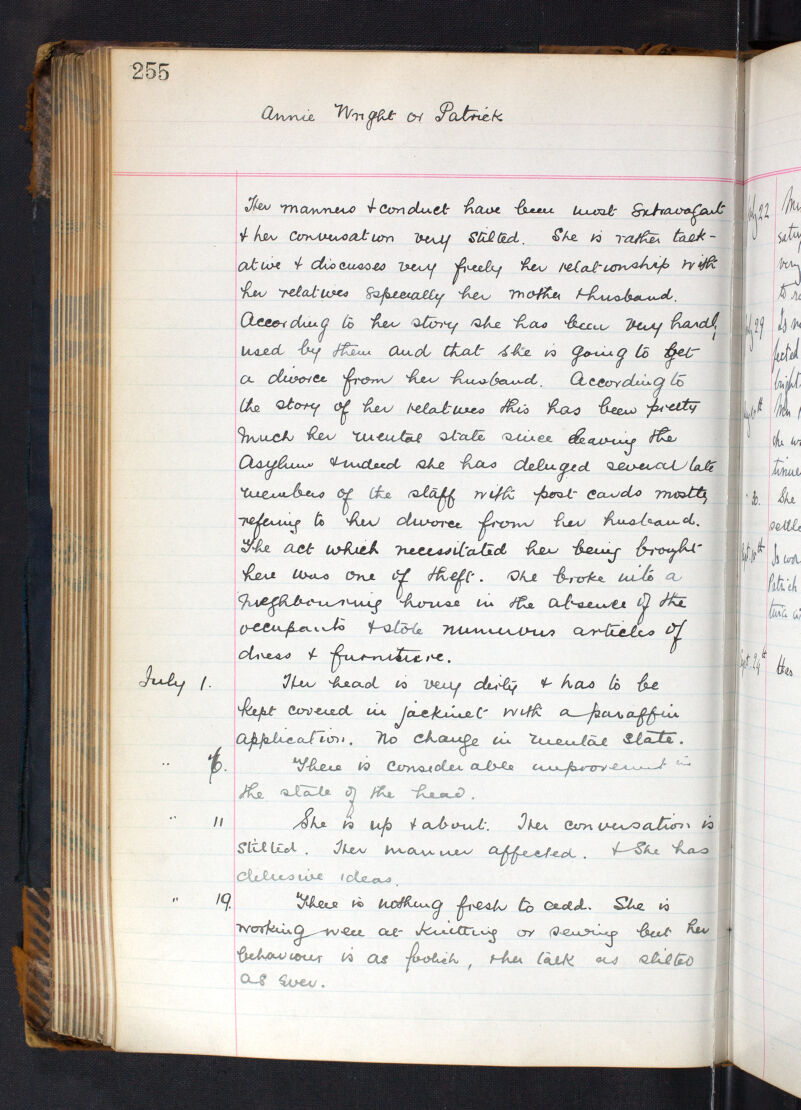 255
Annie Wright or Patrick
Her manners & conduct have been most extravagant
& her conversation very stilted. She is rather talk-
ative & discusses very freely her relationship with
her relatives especially her mother & husband.
According to her story she has been very hardly
used by them and that she is going to get
a divorce from her husband. According to
the story of her relatives this has been pretty
much her mental state since leaving the
Asylum & indeed she has deluged several late
members of the staff with post cards mostly
refering to her divorce from her husband.
The act which necessitated her being brought
here was one of theft. She broke into a
neighbouring house in the absence of the
occupants & stole numerous articles of
dress & furniture.
July 1. Her head is very dirty & has to be
kept covered in jackinet with a paraffin
application. No change in mental state.
" 6. There is considerable improvement in
the state of the head.
" 11 She is up & about. Her conversation is
stilted. Her manner affected. & She has
delusive ideas.
" 19. There is nothing fresh to add. She is
working well at knitting or sewing but her
behaviour is as foolish, & her talk as stilted
as ever.
July 22
very
July 29 Is
bright
20. She
Is
Patrick
Sept. 24th Has